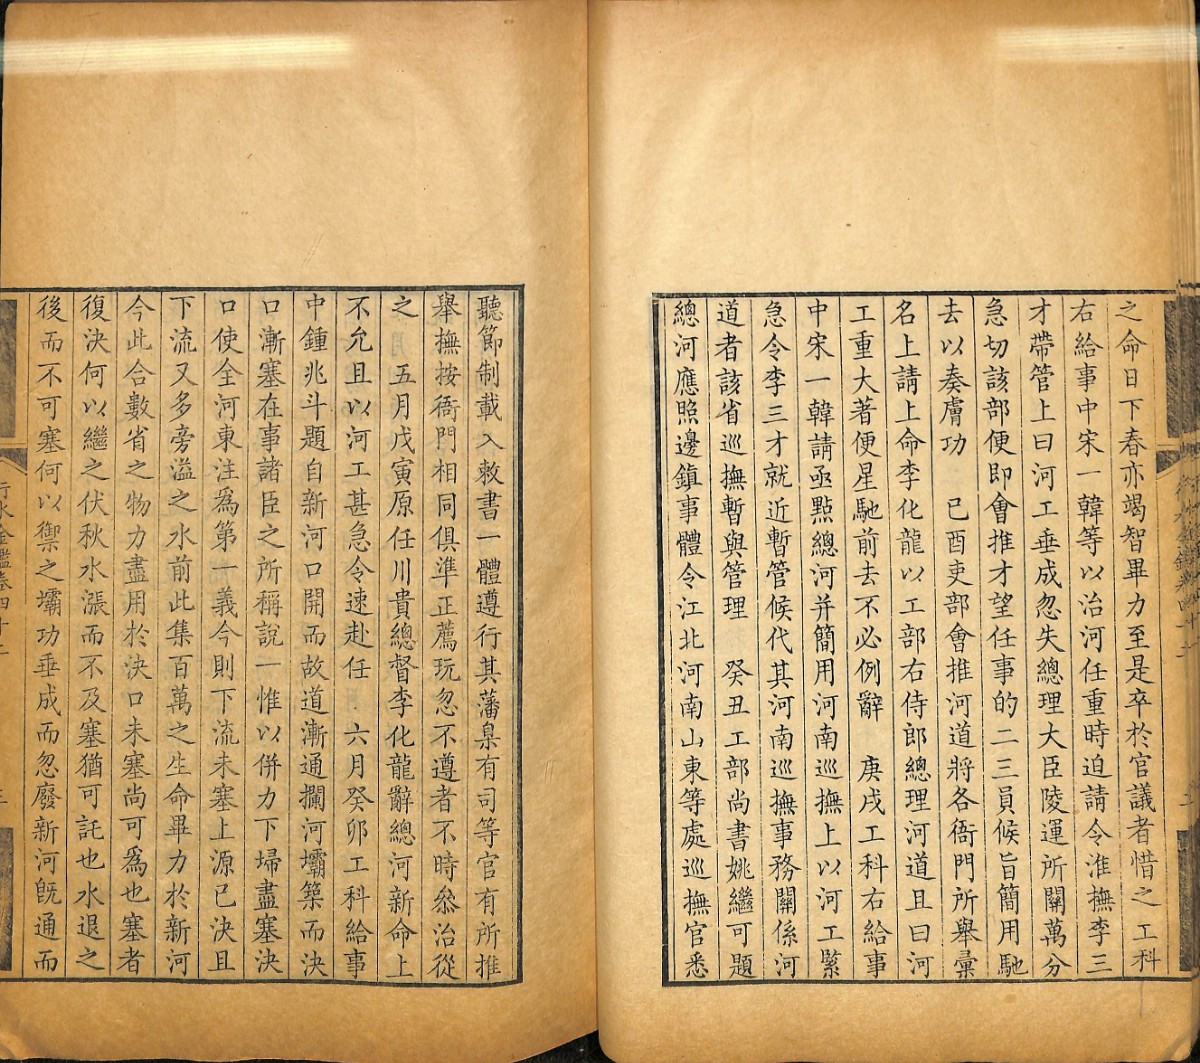 之命日下舂亦竭智畢力至是卒於官議者惜之 工科
右給事中宋一韓等以治河任重時迫請令淮撫李三
才帶管上曰河工垂成忽失總理大臣陵運所關萬分
急切該部便即會推才望任事的二三員候旨簡用馳
去以奏膚功 己酉吏部會推河道將各衙門所舉彙
名上請上命李化龍以工部右侍郎總理河道且曰河
工重大著便星馳前去不必例辭 庚戌工科右給事
中宋一韓請亟點總河并簡用河南巡撫上以河工緊
急令李三才就近暫管候代其河南巡撫事務關係河
道者該省巡撫暫與管理 癸丑工部尚書姚繼可題
總河應照邊鎮事體令江北河南山東等處巡撫官悉
聽節制載入敕書一體遵行其藩臬有司等官有所推
舉撫按衙門相同俱準正薦玩忽不遵者不時叅治從
之 五月戊寅原任川貴總督李化龍辭總河新命上
不允且以河工甚急令速赴任 六月癸卯工科給事
中鍾兆斗題自新河口開而故道漸通攔河壩築而決
口漸塞在事諸臣之所稱說一惟以併力下埽盡塞決
口使全河東注爲第一義今則下流未塞上源已決且
下流又多旁溢之水前此集百萬之生命畢力於新河
今此合數省之物力盡用於決口未塞尚可爲也塞者
復決何以繼之伏秋水漲而不及塞猶可託也水退之
後而不可塞何以禦之壩功垂成而忽廢新河旣通而
行水金鑑卷四十二 三